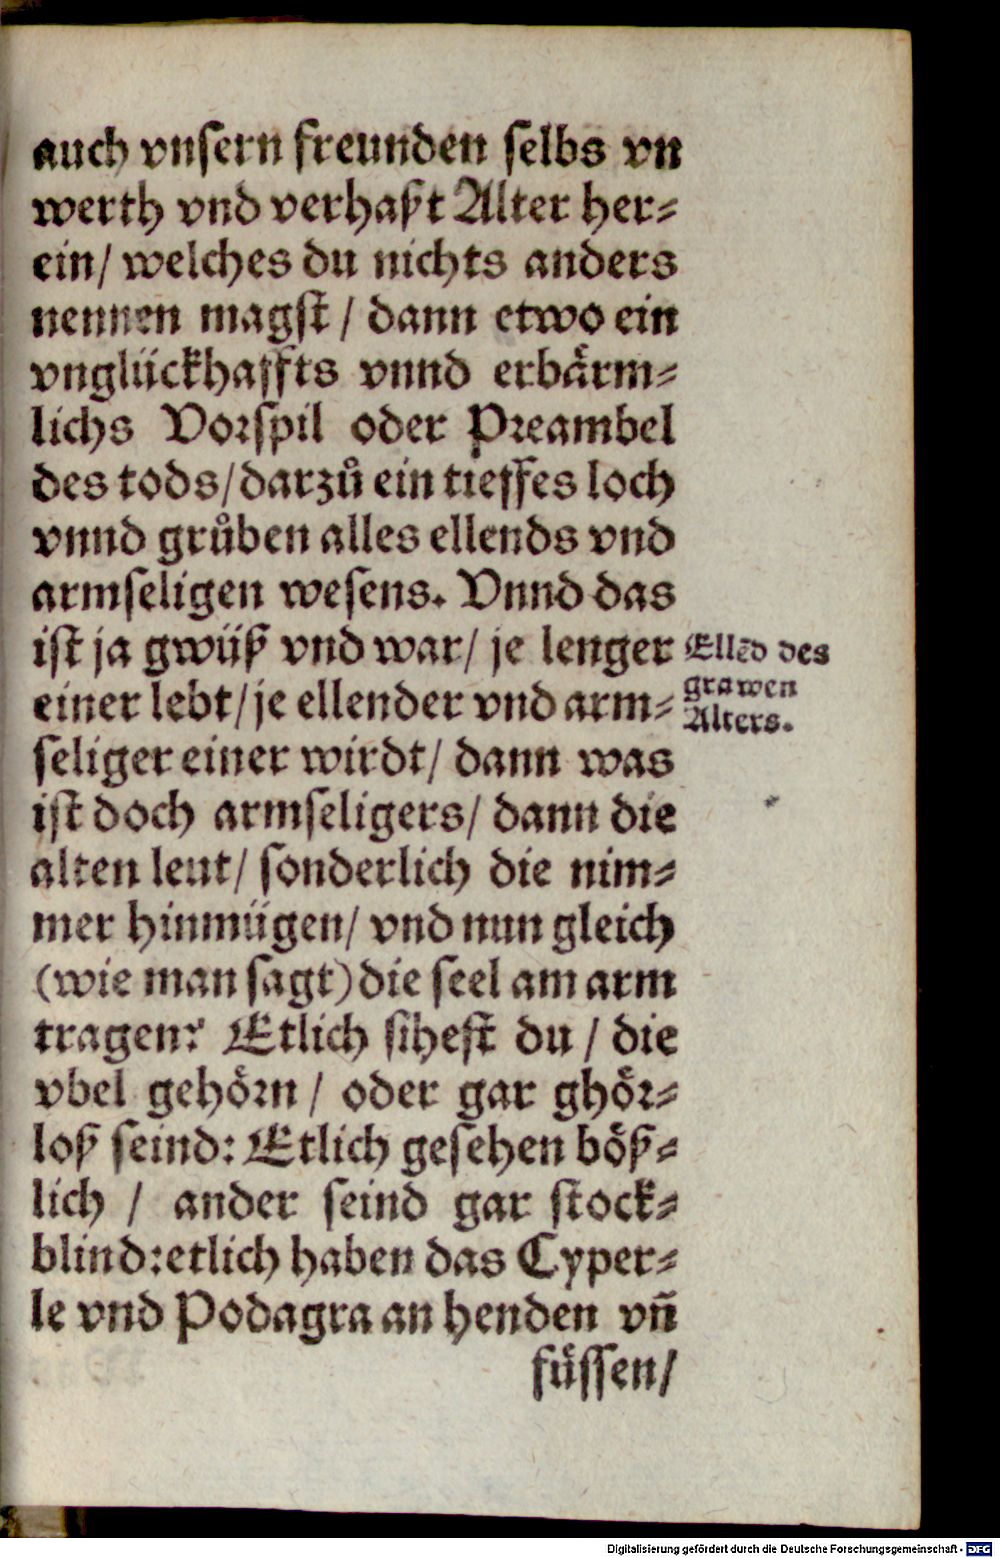 auch vnsern freunden selbs vn
werth vnd verhaßt Alter her⸗
ein/ welches du nichts anders
nennen magst / dann etwo ein
vnglückhaffts vnnd erbaͤrm⸗
lichs Vorspil oder Preambel
des tods/darzuͦ ein tieffes loch
vnnd gruͦben alles ellends vnd
armseligen wesens. Vnnd das
ist ja gwüß vnd war/ je lenger
einer lebt/je ellender vnd arm⸗
seliger einer wirdt/ dann was
ist doch armseligers/ dann die
alten leut/ sonderlich die nim⸗
mer hinmügen/ vnd nun gleich
(wie man sagt) die seel am arm
tragen? Etlich sihest du / die
vbel gehoͤrn / oder gar ghoͤr⸗
loß seind: Etlich gesehen boͤß⸗
lich / ander seind gar stock⸗
blind: etlich haben das Cyper⸗
le vnd Podagra an henden vn̄
fuͤssen/
Ellēd des
grawen
Alters.
Digitalisierung gefördert durch die Deutsche Forschungsgemeinschaft - DFG